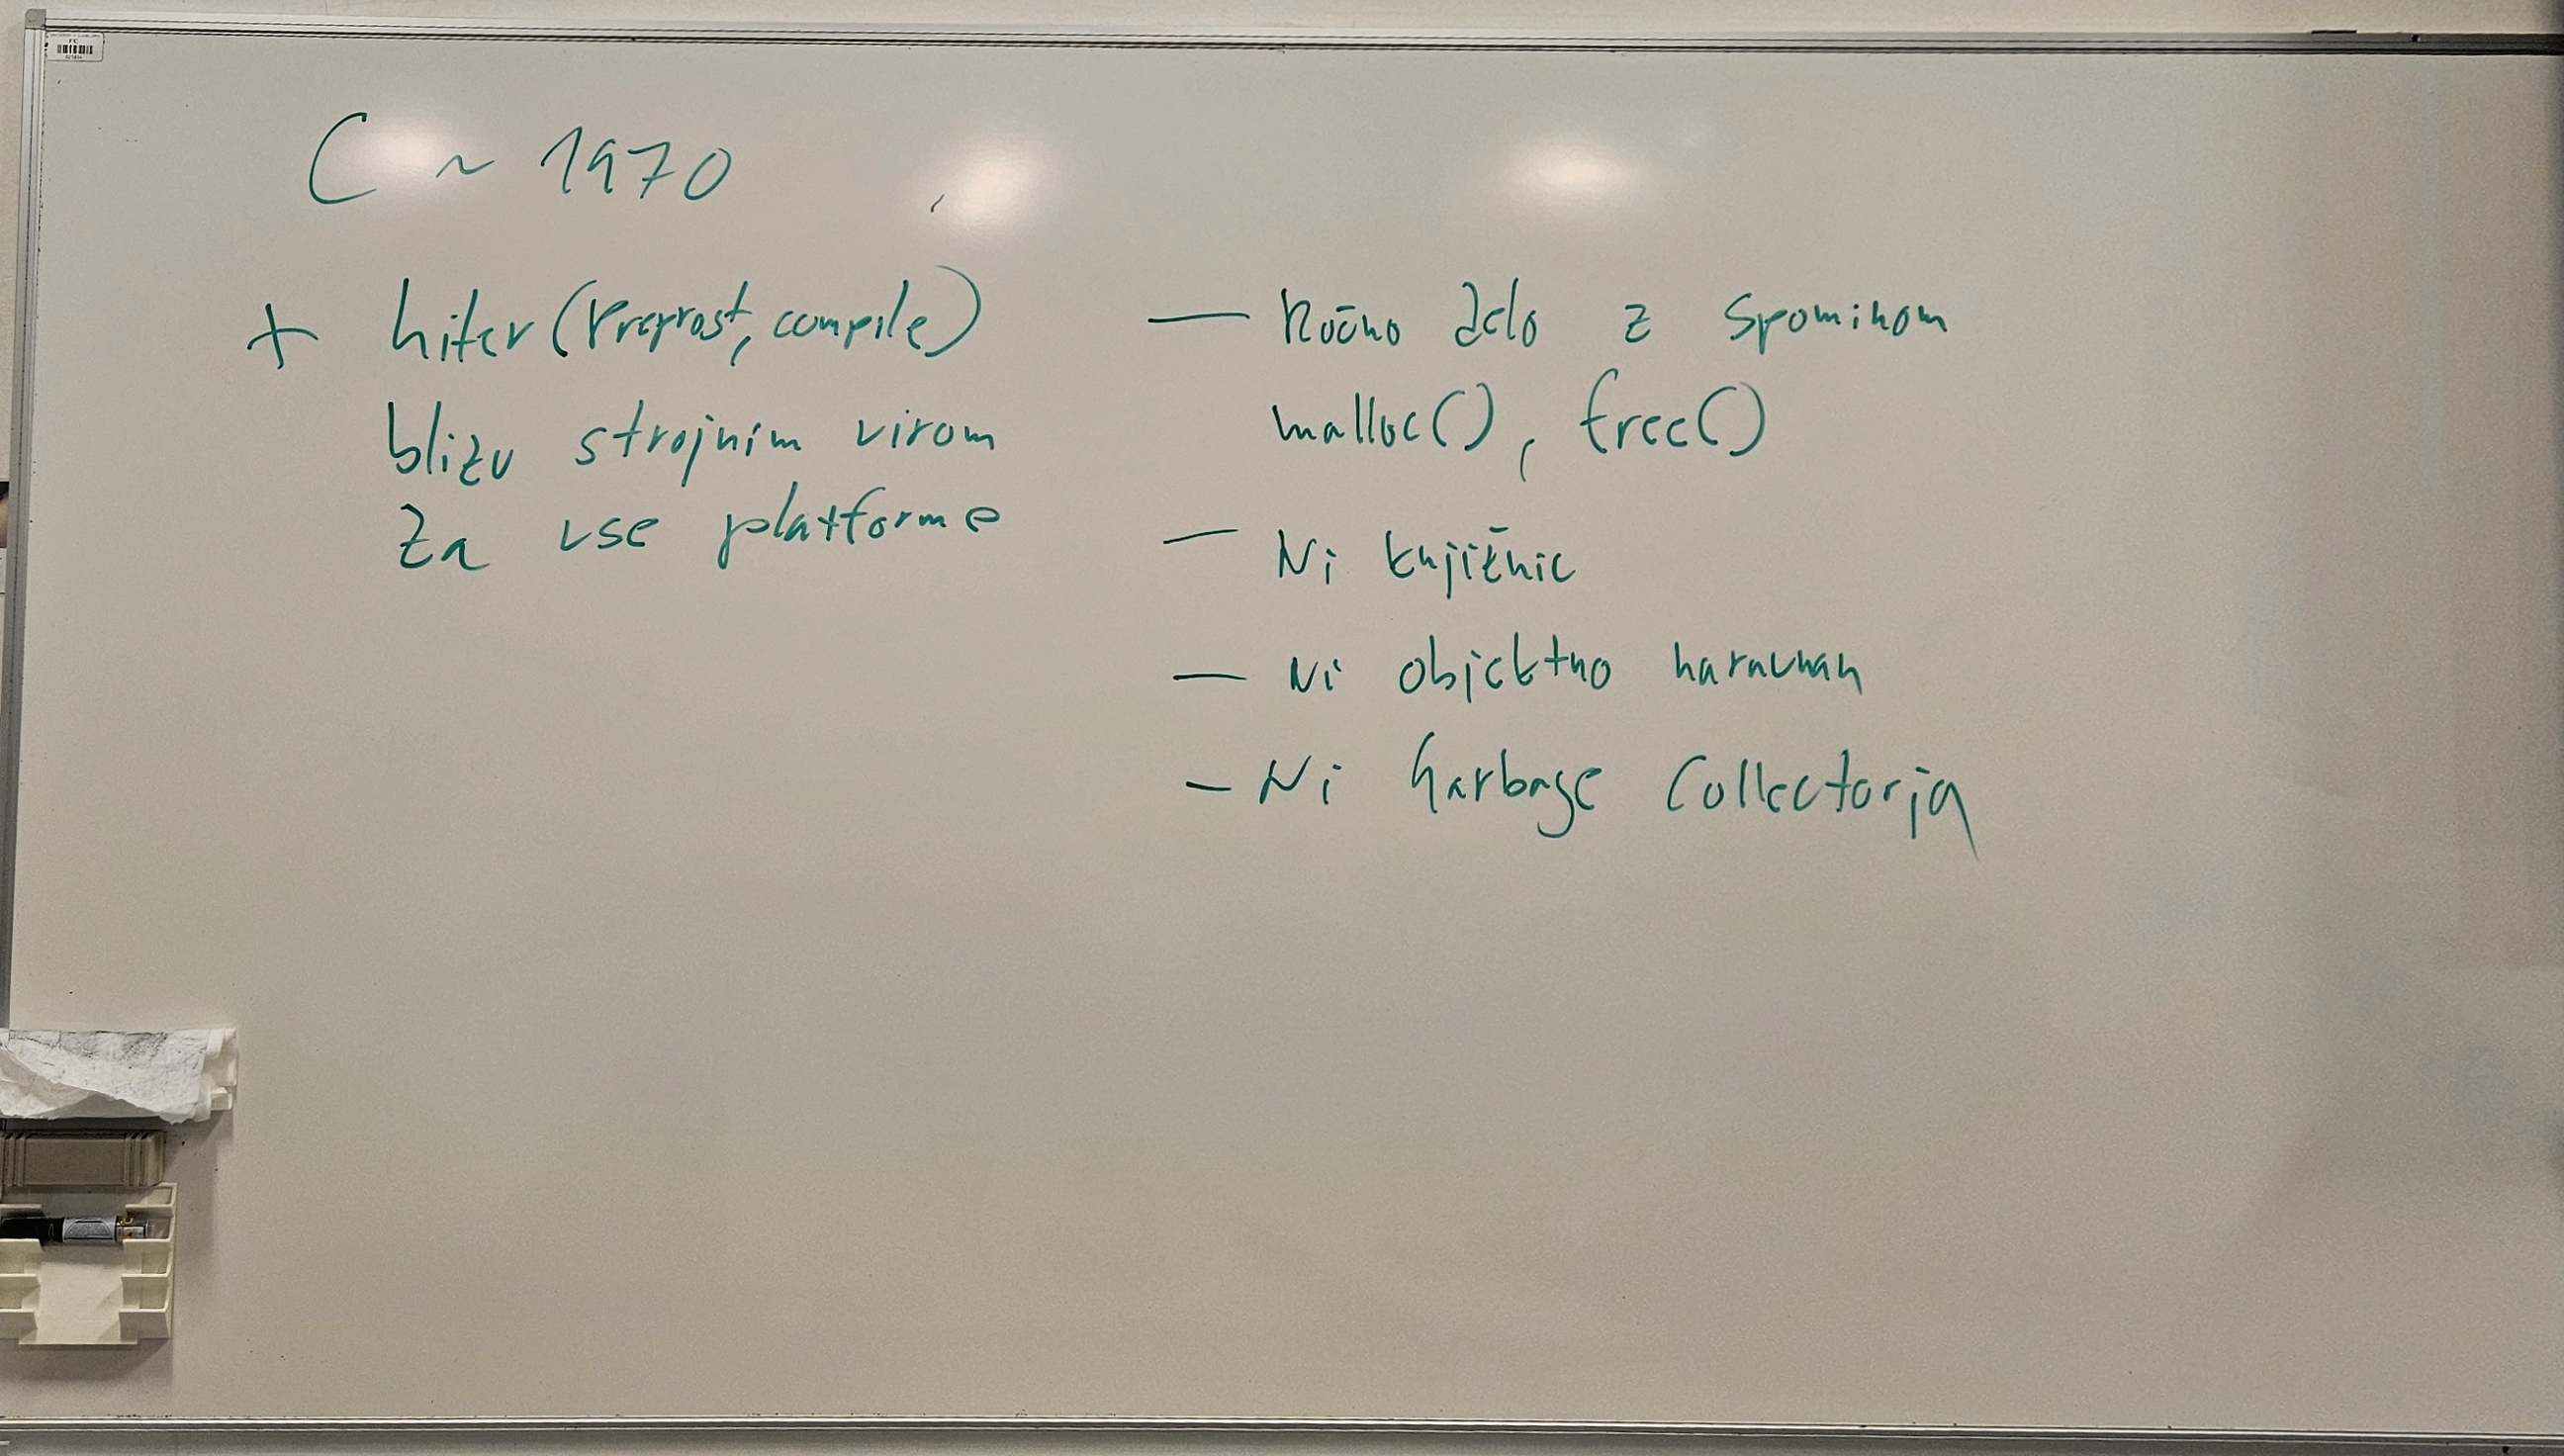 C ~ 1970
+ hiter (preprost, compile)
blizu strojnim virom
za vse platforme
— Ročno delo z spominom
malloc(), free()
— Ni knjižnic
— Ni objektno naravnan
— Ni Garbage Collectorja